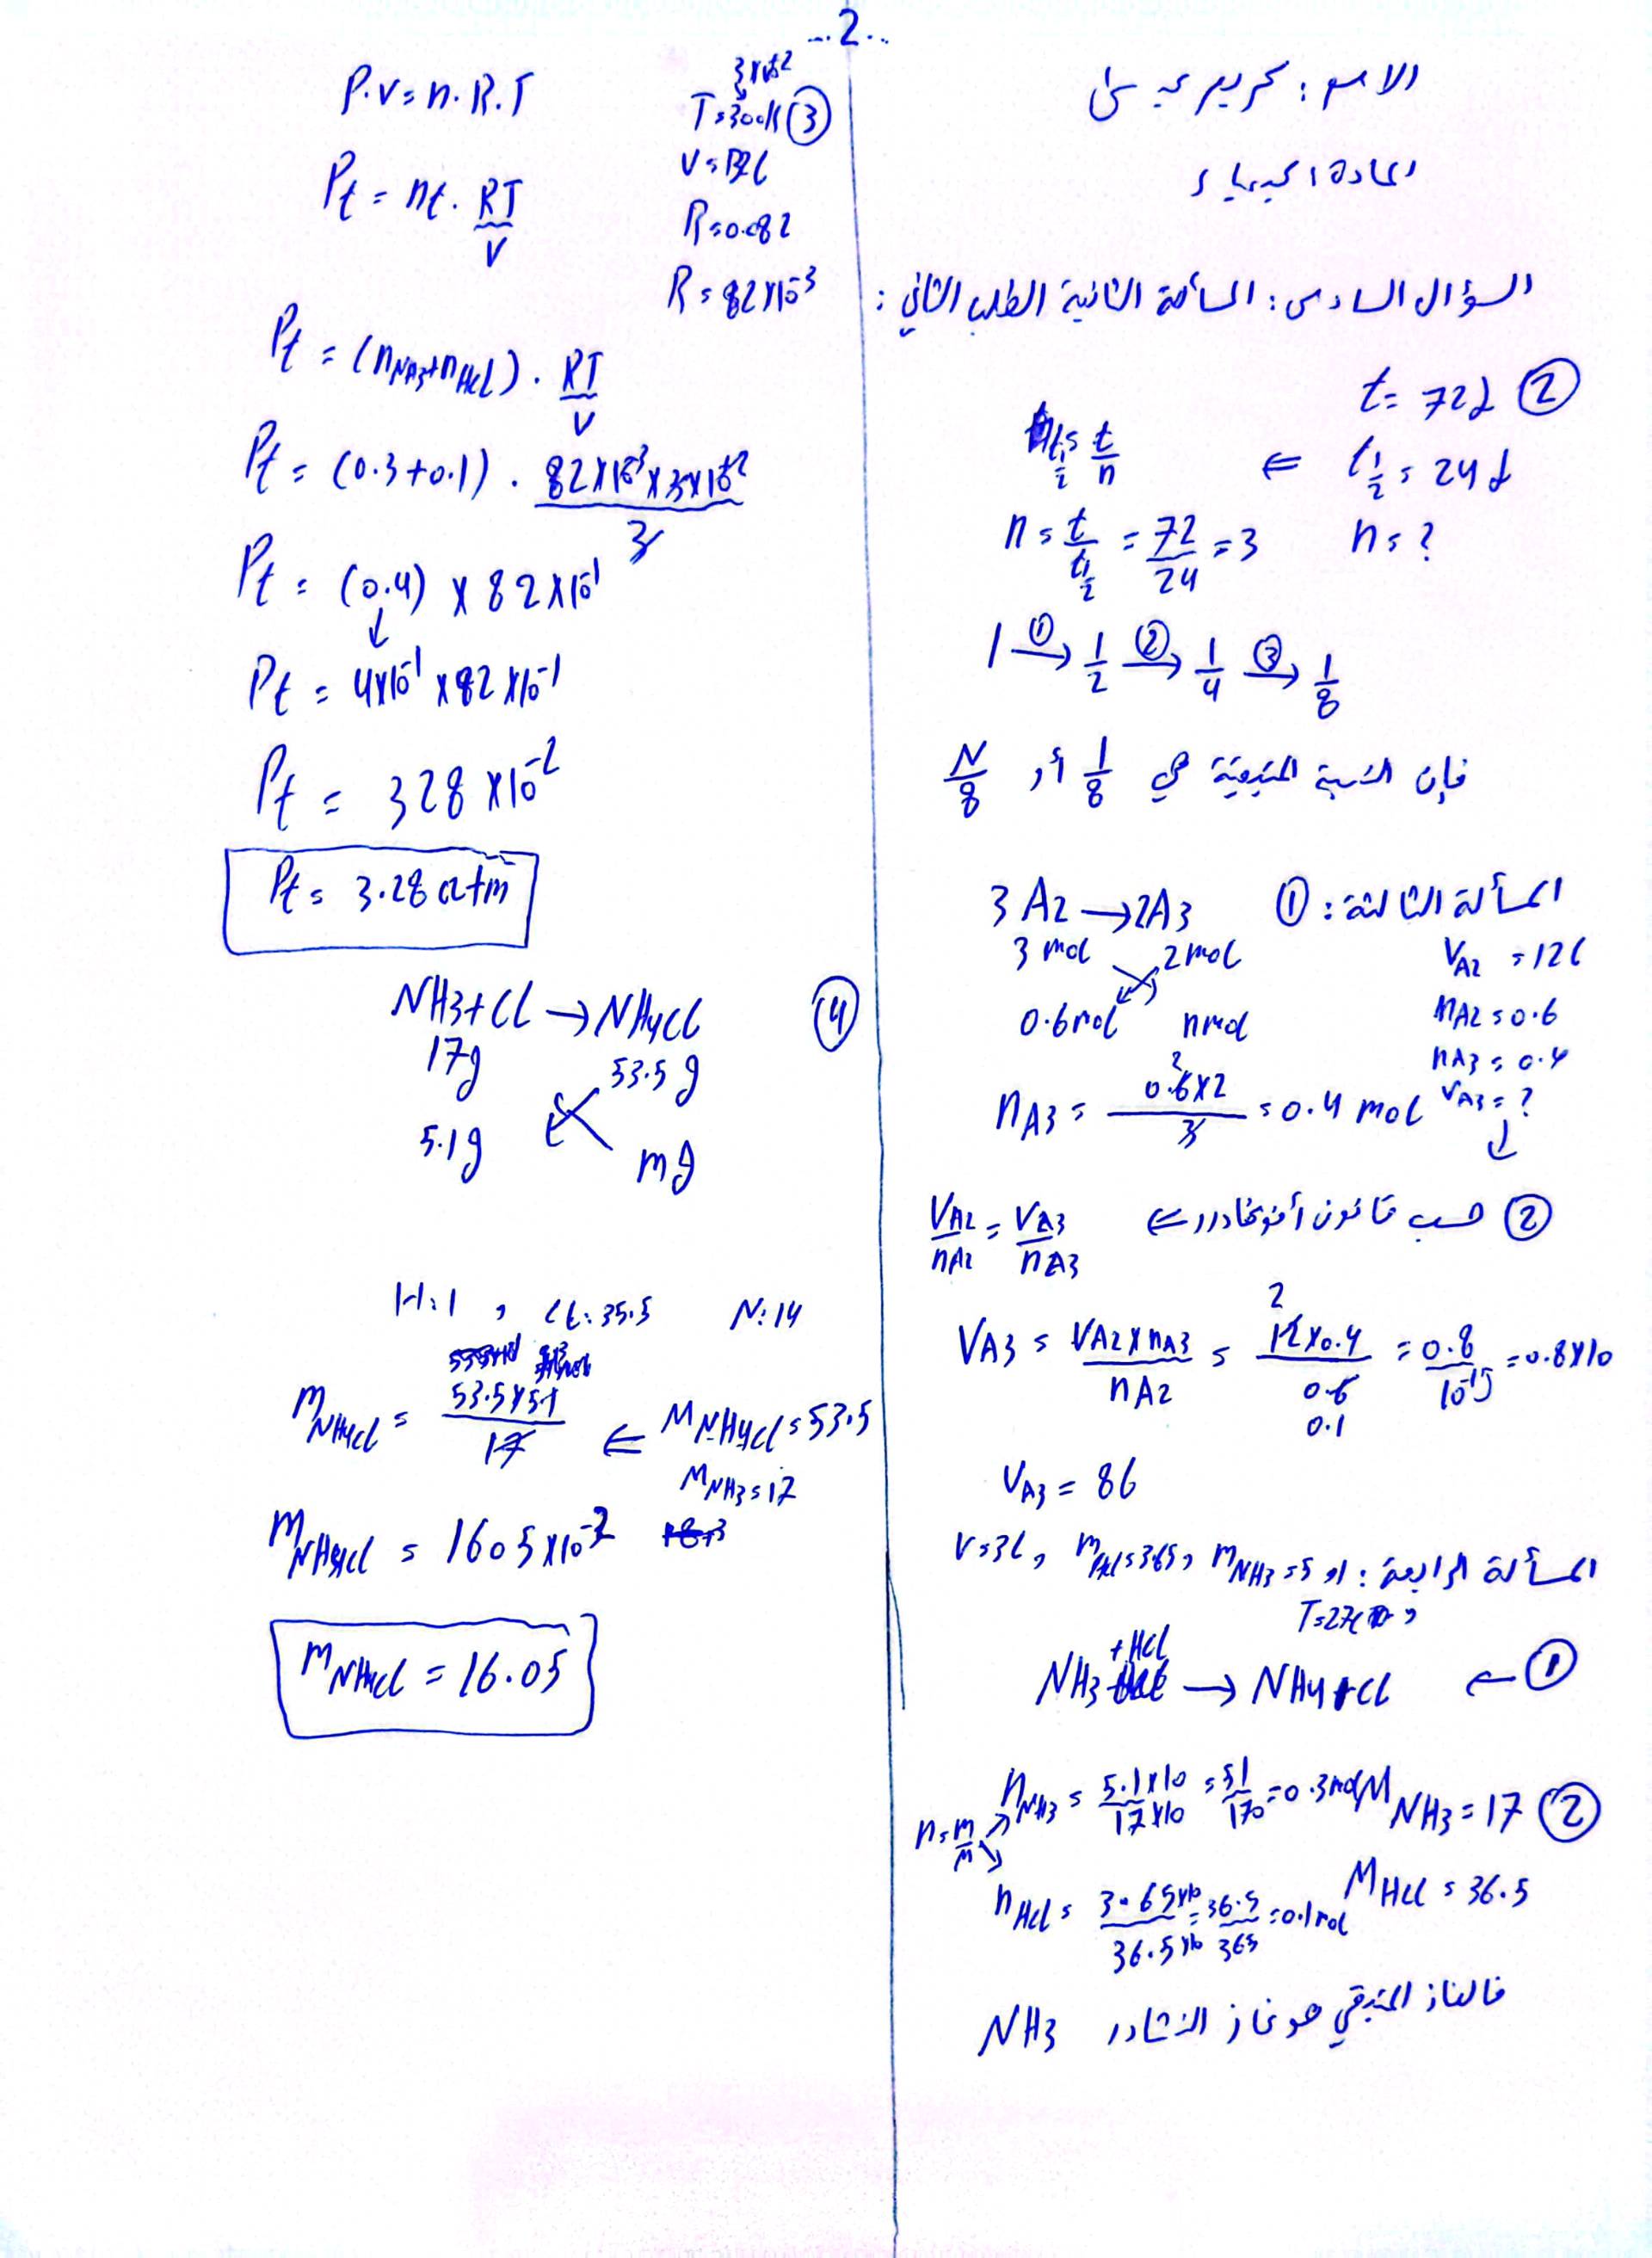 ..2..
الاسم: كريم عيسى
المادة: كيمياء
السؤال السادس: المسألة الثانية الطلب الثاني:
② t = 72 d
t½ = 24 d ⇐ t½ = t/n
n = ? n = t/t½ = 72/24 = 3
1 →① 1/2 →② 1/4 →③ 1/8
فإن النسبة المتبقية هي 1/8 أو N/8
المسألة الثالثة: ①
3 A2 → 2A3
3 mol 2 mol
0.6 mol n mol
VA2 = 12 L
nA2 = 0.6
nA3 = 0.4
VA3 = ?
nA3 = 0.6×2/3 = 0.4 mol
② حسب قانون أفوغادرو ⇐ VA2/nA2 = VA3/nA3
VA3 = VA2×nA3/nA2 = 12×0.4/0.6 = 0.8/10-1 = 0.8×10
0.1
VA3 = 8L
المسألة الرابعة: mNH3 = 5.1, mHCl = 3.65, V = 3L
T = 27C,
① ← NH3 + HCl → NH4+Cl
② MNH3 = 17
n = m/M
nNH3 = 5.1×10/17×10 = 51/170 = 0.3 mol
MHCl = 36.5
nHCl = 3.65×10/36.5×10 = 36.5/365 = 0.1 mol
فالغاز المتبقي هو غاز النشادر NH3
3×10+2
③ T = 300K
R = 0.082
R = 82×10-3
P.V = n.R.T
Pt = nt. RT/V
Pt = (nNA3+nHCl) . RT/V
Pt = (0.3+0.1) . 82×10-3×3×10+2/3
Pt = (0.4) × 82×10-1
Pt = 4×10-1 × 82×10-1
Pt = 328×10-2
Pt = 3.28 atm
④ NH3+Cl → NH4Cl
17g 53.5 g
5.1g m g
H:1 , Cl: 35.5 N: 14
MNH4Cl = 53.5
MNH3 = 17
mNH4Cl = 53.5×5.1/17 ⇐
mNH4Cl = 1605×10-2
mNH4Cl = 16.05